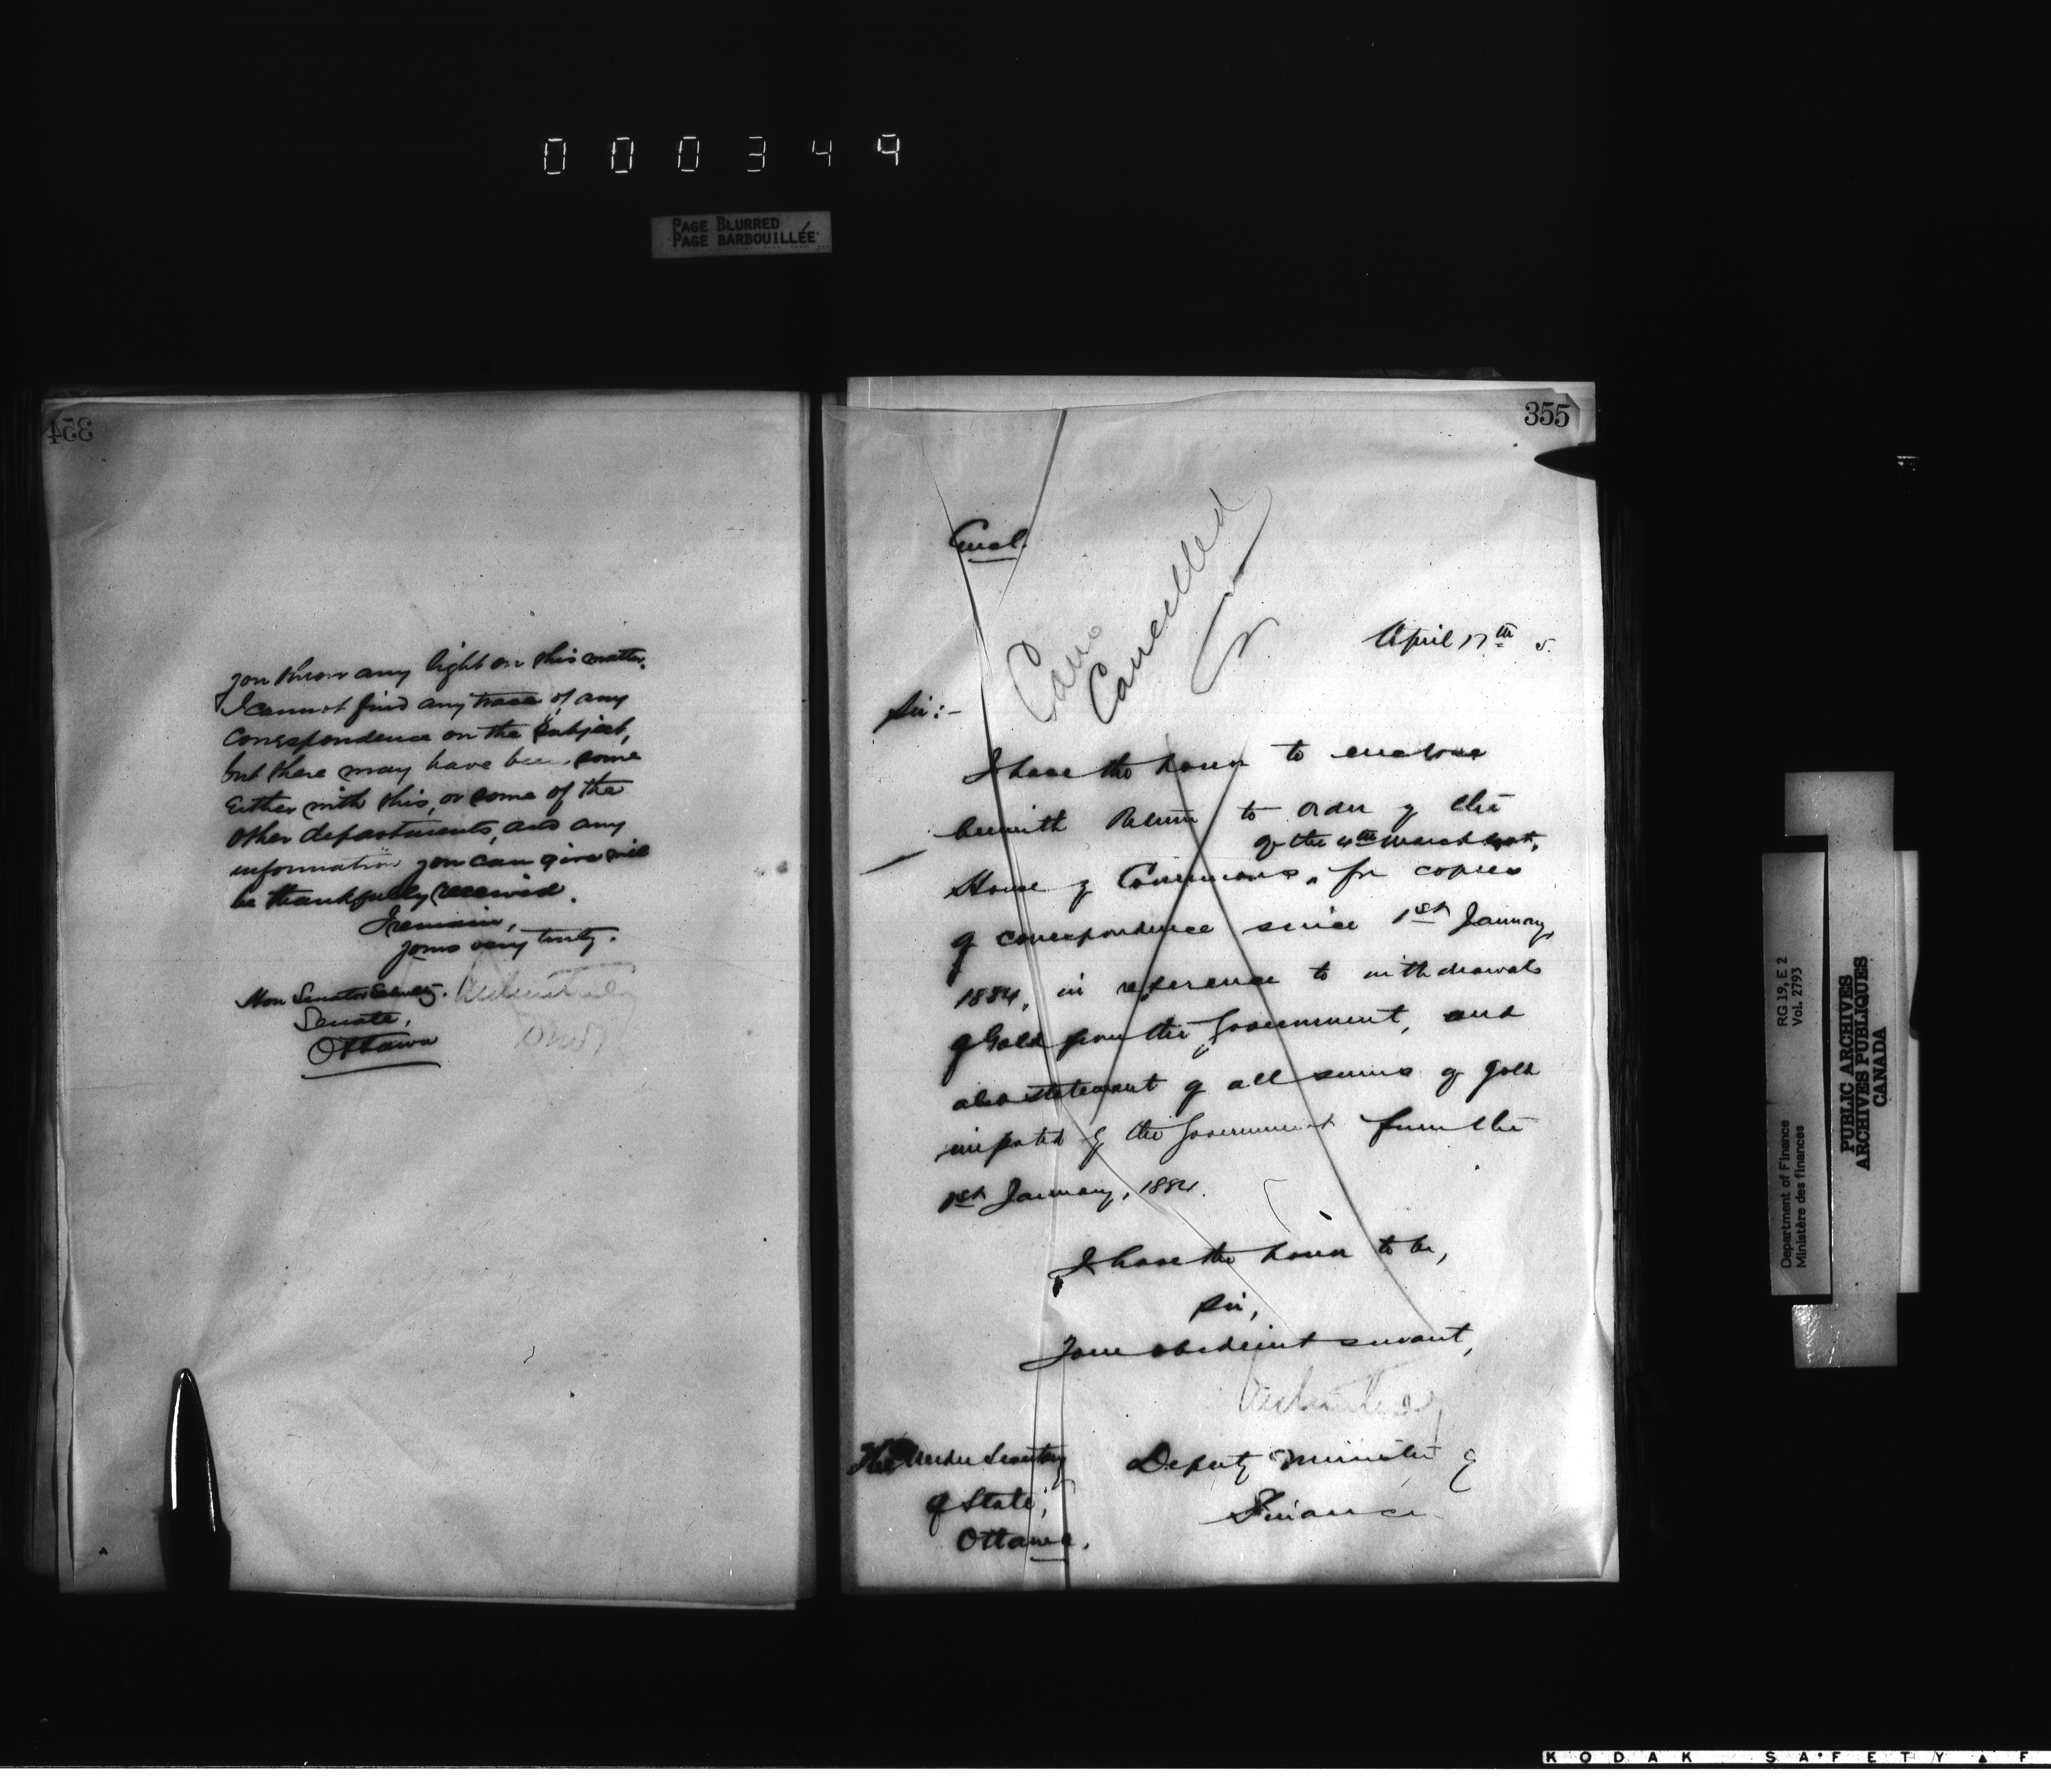 000349
PAGE BLURRED
PAGE BARBOUILLÉE
354
you throw any light on this matter.
I cannot find any trace of any
Correspondence on the subject,
but there may have been some
Either with this, or some of the
other departments, and any
information you can give will
be thankfully received.
I remain,
yours very truly.
Hon Senator
Senate,
Ottawa
355
Encl.
Canc
Cancelled
April 17th 5.
Sir:-
I have the honor to enclose
herewith Return to order of the
of the 4th March last,
House of Commons, for copies
of correspondence since 1st January,
1884, in reference to withdrawals
of Gold from the Government, and
also statement of all sums of gold
imported by the Government from the
1st January, 1884.
I have the honor to be,
Sir,
Your obedient servant,
The Under Secretary
of State,
Ottawa.
Deputy Minister of
Finance
Department of Finance RG 19, E 2
Ministère des finances Vol. 2793
PUBLIC ARCHIVES
ARCHIVES PUBLIQUES
CANADA
KODAK SAFETY F